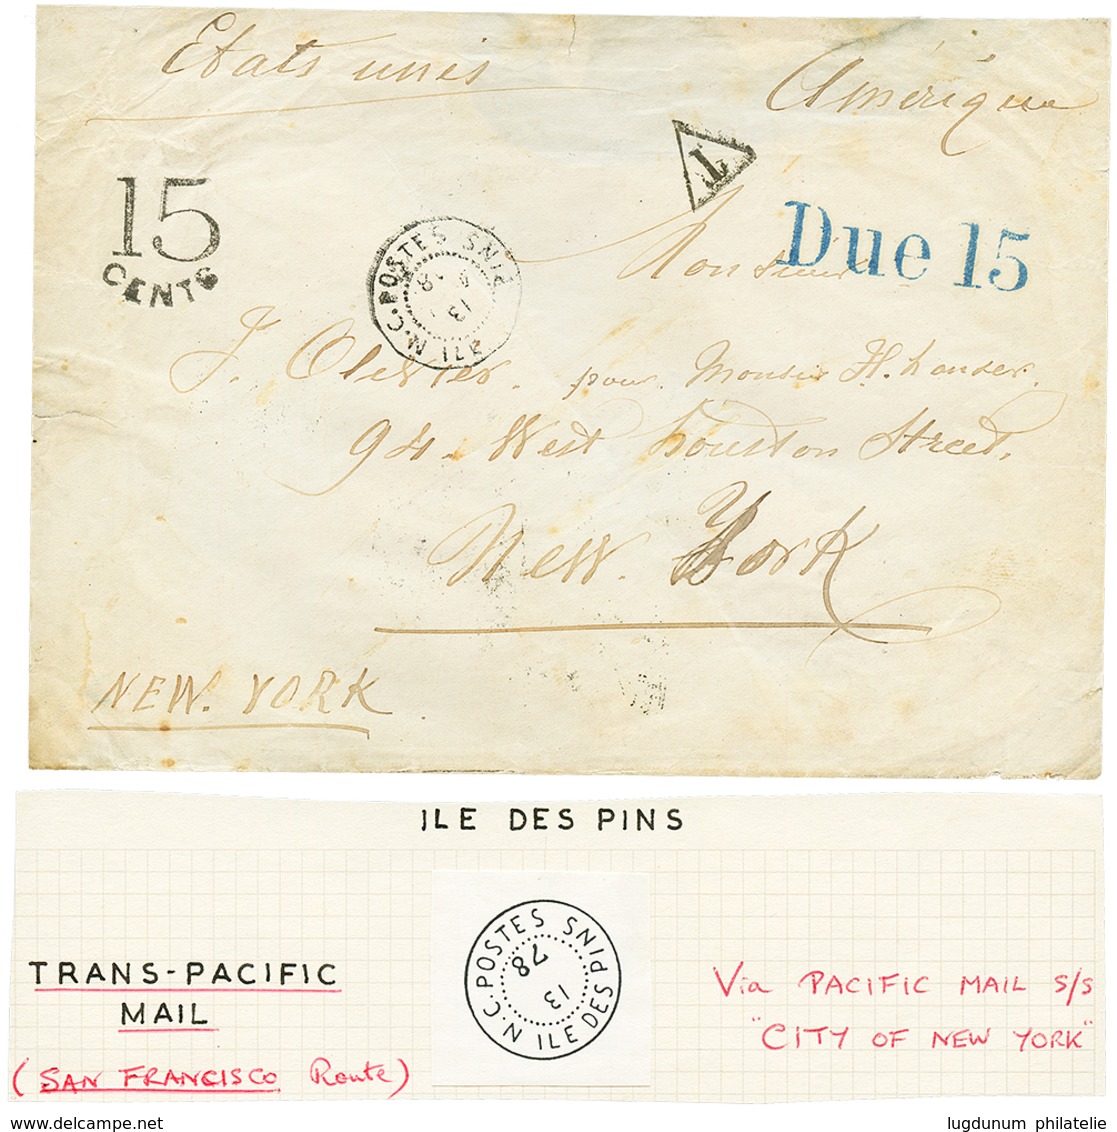 Etats unies
Amérique
T
15
CENTS
Due 15
N.C. POSTES ILE PINS
13
Monsieur
J. Olerier. pour Monsieur H. hanser.
94. West houston Street.
New York
NEW. YORK.
ILE DES PINS
N.C. POSTES ILE DES PINS
13
78
TRANS-PACIFIC
MAIL
(SAN FRANCISCO Route)
Via PACIFIC MAIL S/S
"CITY OF NEW YORK"
lugdunum philatelie